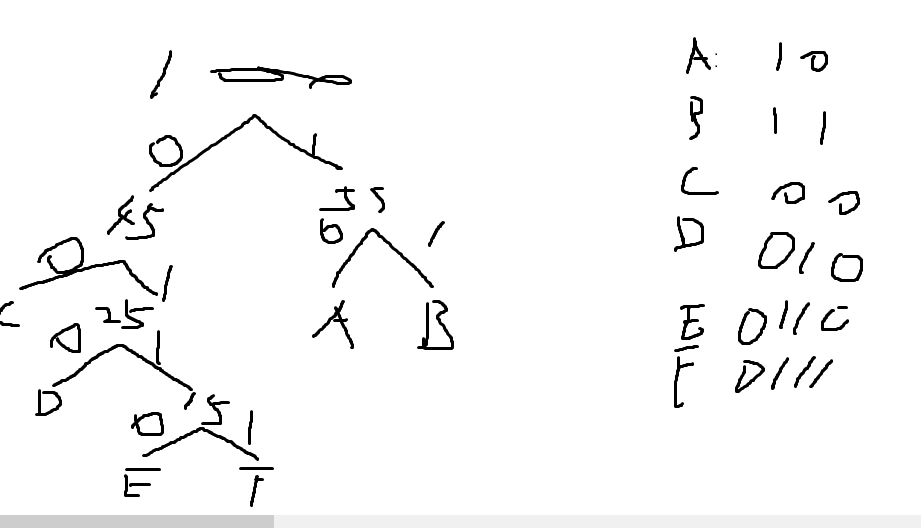 100
0 1
45 55
0 1 0 1
C 25 A B
0 1
D 15
0 1
E F
A: 10
B 11
C 00
D 010
E 0110
F 0111